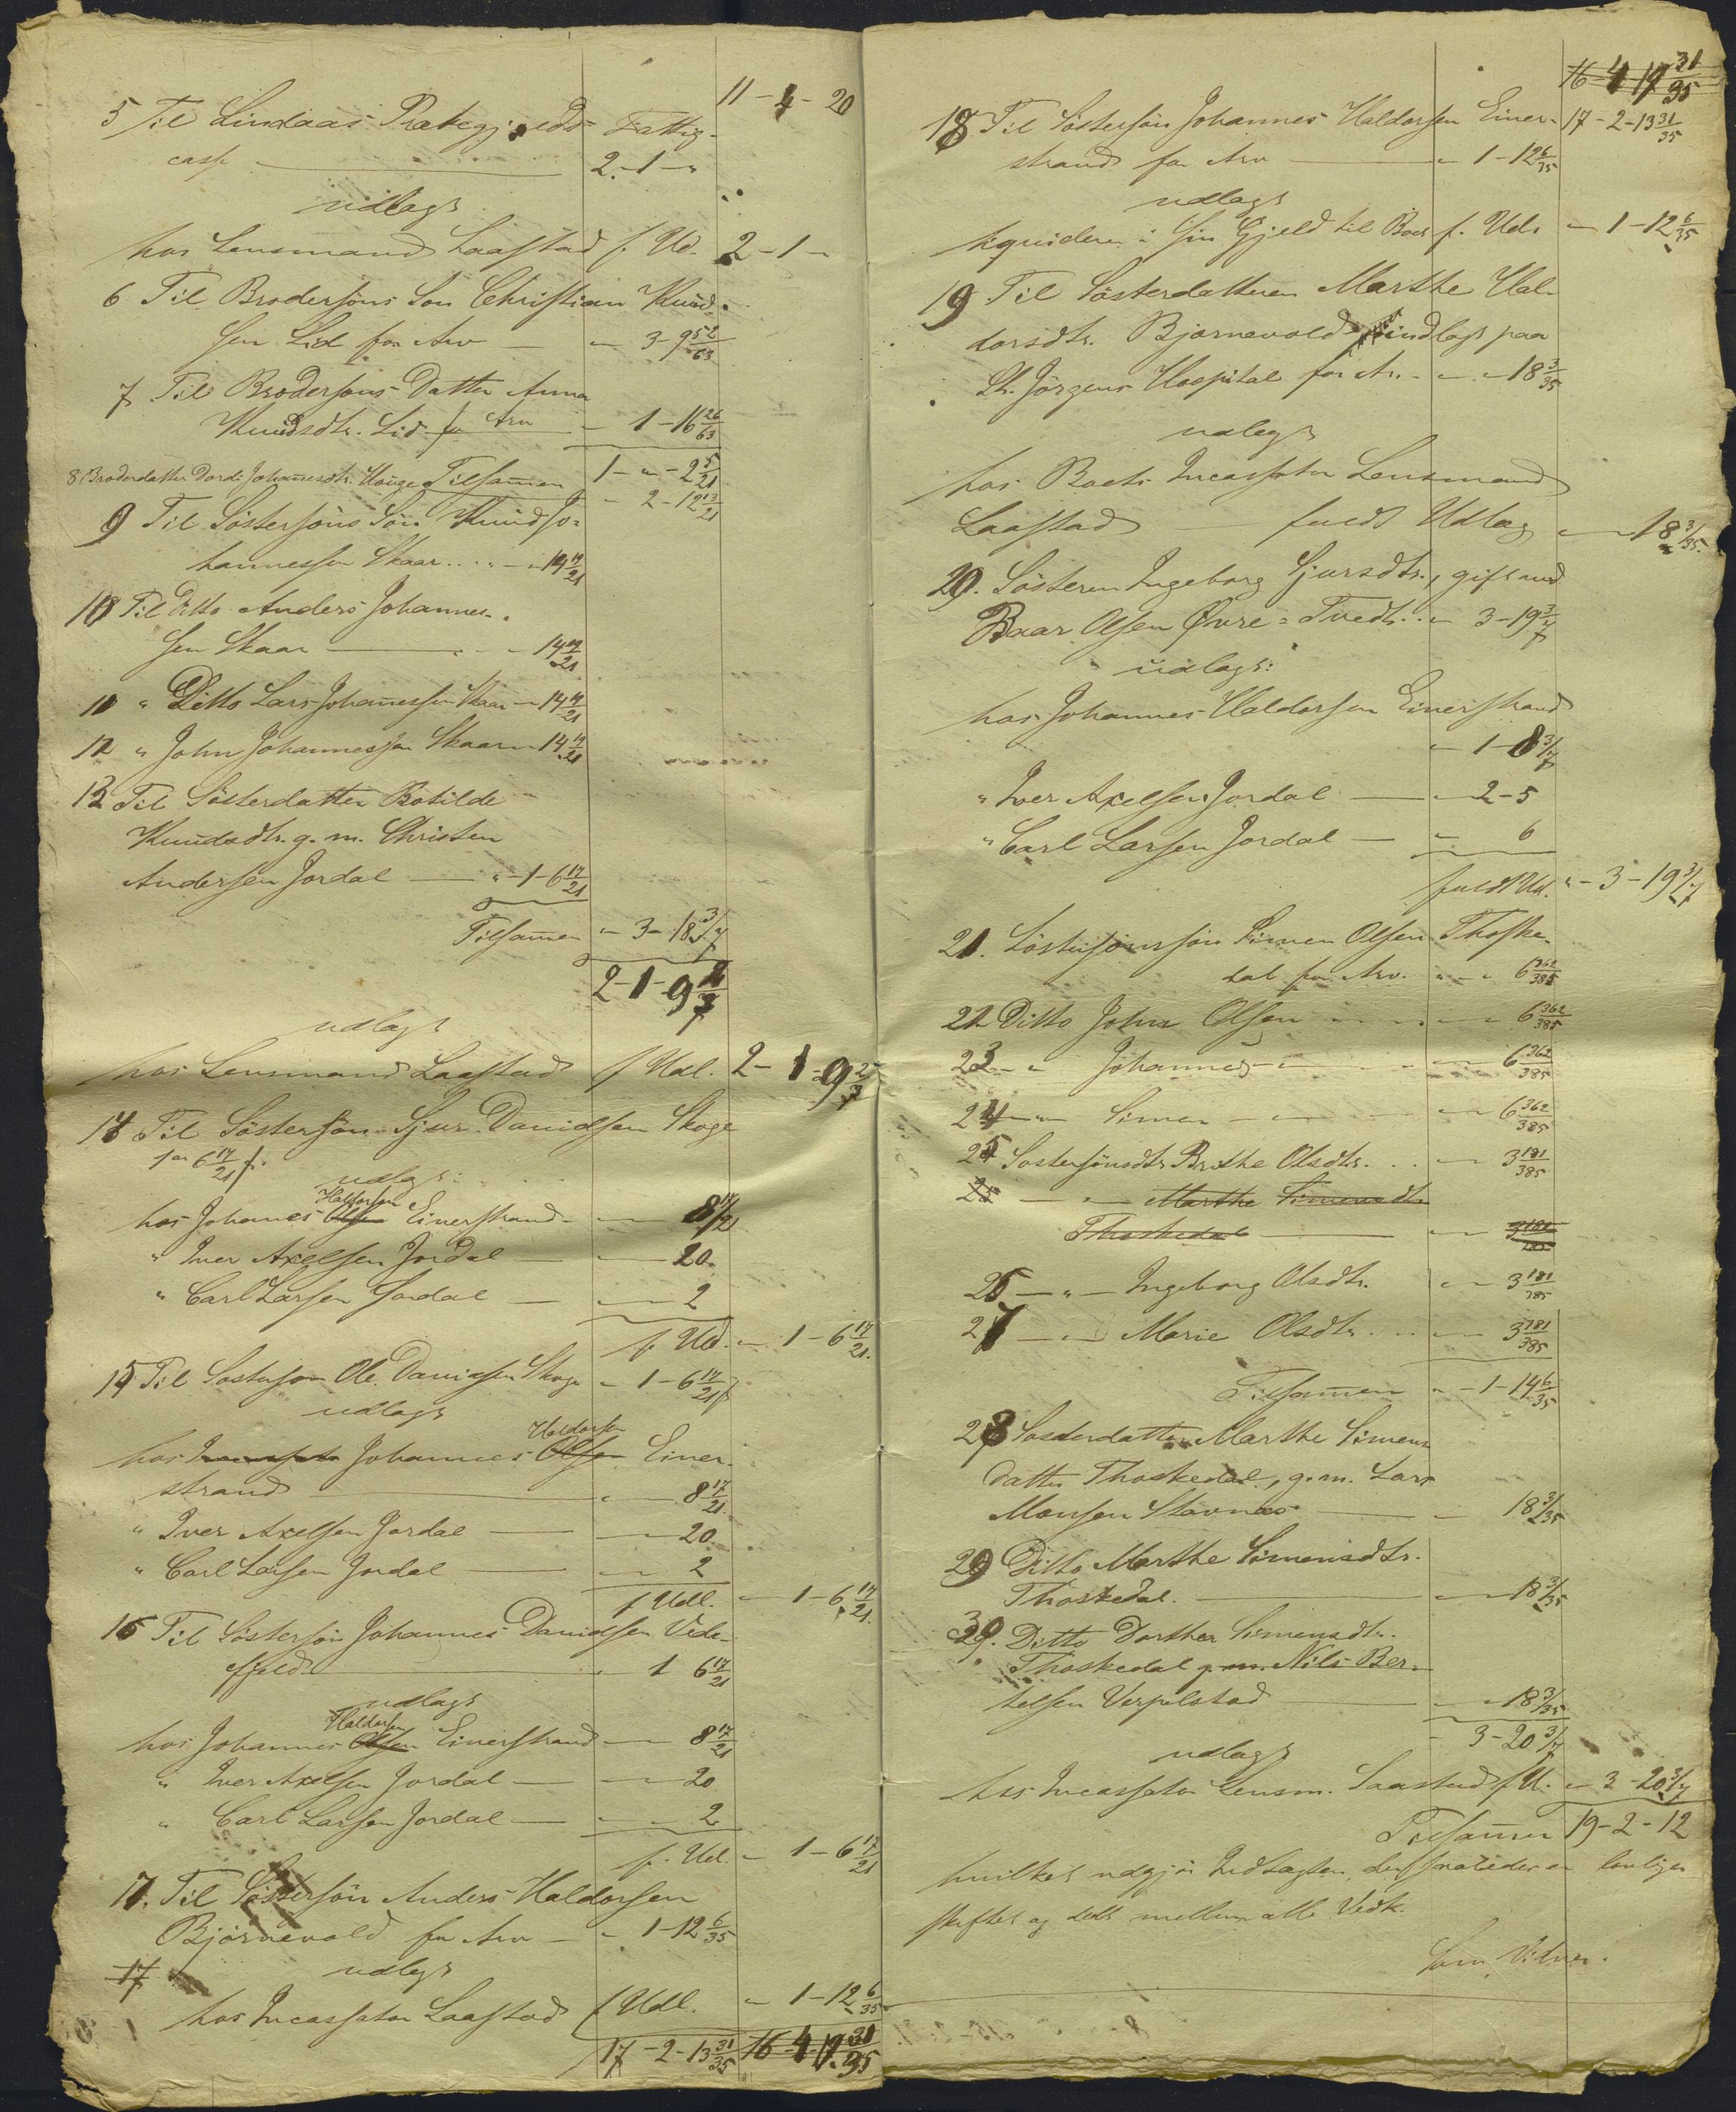 11-4-20
5 Til Lindaas Præstegjelds Fattig-
casse 2-1-"
udlagt
hos Lensmand Laastad f. Ud. 2-1-
6 Til Brodersöns Sön Christian Knud-
sen Lid for Arv " 3-9 52/63
7 Til Brodersöns Datter Anna
Knudsdtr. Lid for Arv - 1-16 26/63
8 Broderdatter Dordi Johannesdtr. Houge Tilsammen 1-"-2 5/21
- 2-12 13/21
9 Til Söstersöns Sön Knud Jo-
hannessen Skaar . . . " - 14 19/21
10 Til Ditto Anders Johannes-
sen Skaar - 14 19/21
11 " Ditto Lars Johannessen Skaar - 14 19/21
12 " John Johannessen Skaar - 14 19/21
13 Til Sösterdatter Botilde
Knudsdtr. g. m. Christen
Andersen Jordal " - 1-6 17/21
Tilsammen " 3-18 3/7
2-1-9 2/7
udlagt
hos Lensmand Laastad f Udl. 2-1-9 2/7
14 Til Söstersön Sjur Davidsen Skoge
1 6 17/21 f.
udlagt:
hos Johanes Olsen Haldorsen Einerstrand - 8 17/21
" Iver Axelsen Jordal 20
" Carl Larsen Jordal 2
f. Ud. - 1-6 17/21
15 Til Söstersön Ole Davidsen Skoge - 1-6 17/21
udlagt
hos Johannes Olsen Haldorsen Einer-
strand 8 17/21
" Iver Axelsen Jordal 20
" Carl Larsen Jordal 2
f Udl. - 1-6 17/21
16 Til Söstersön Johannes Davidsen Vide-
sfjeld 1 6 17/21
udlagt
hos Johannes Olsen Haldorsen Einerstrand 8 17/21
" Iver Axelsen Jordal 20
" Carl Larsen Jordal 2
f. Ud. - 1-6 17/21
17. Til Söstersön Anders Haldorsen
Björnevold for Arv - 1-12 6/35
17 udlagt
hos Incassator Laastad f Udl. - 1-12 6/35
17-2-13 31/35 16-4-19 31/35
16-4-19 31/35
18 Til Söstersön Johannes Haldorsen Einer- 17-2-13 31/35
strand for Arv " 1-12 6/35
udlagt
liquideres i sin Gjeld til Boet f. Udl. - 1-12 6/35
19 Til Sösterdatteren Marthe Hal-
dorsdtr. Bjornevold indlagt paa
St. Jörgens Hospital for Ar. - - 18 3/35
udlagt
hos Boets Incassator Lensmand
Laastad fuldt Udlæg - 18 3/35
20. Sösteren Ingeborg Sjursdtr., gift med
Baar Olsen Øvre-Tvedt . . " 3-19 3/7
udlagt:
hos Johannes Haldorsen Einerstrand
" 1-8 3/7
" Iver Axelsen Jordal 2-5
" Carl Larsen Jordal 6
fuldt Ud. " - 3-19 3/7
21. Söstersönssön Simen Olsen Thoske-
dal for Arv. " - " 6 362/385
22 Ditto John Olsen 6 362/385
23 - " Johannes 6 362/385
24 - " Simen 6 362/385
25 Söstersönsdtr Brithe Olsdtr. . . 3 181/385
25 - " - Marthe Simensdtr
Thoskedal 3 181/385
26 - " - Ingeborg Olsdtr. 3 181/385
27 - " - Marie Olsdtr . . 3 181/385
Tilsammen " - 1-14 6/35
28 Sosterdatter Marthe Simens
datter Thoskedal, g. m. Lars
Monsen Stavnæs 18 3/35
29 Ditto Marthe Simensdtr.
Thoskedal. 18 3/35
30. Ditto Dorthea Simensdtr.
Thoskedal g. m. Nils Ber-
telsen Verpelstad 18 3/35
3-20 3/7
udlagt
hos Incassator Lensm. Laastad f U. " 3-20 3/7
Tilsammen 19-2-12
hvilket udgjör Indtægten, der saaledes er lovligen
skiftet og delt mellem alle Vedk.
Som Vidner.